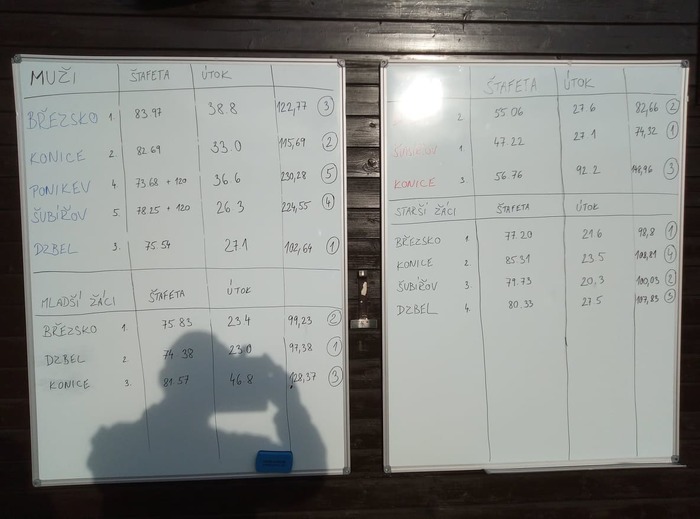 MUŽI ŠTAFETA ÚTOK
BŘEZSKO 1. 83.97 38.8 122,77 3
KONICE 2. 82.69 33.0 115,69 2
PONIKEV 4. 73.68 + 120 36.6 230,28 5
ŠUBÍŘOV 5. 78.25 + 120 26.3 224,55 4
DZBEL 3. 75.54 27.1 102,64 1
MLADŠÍ ŽÁCI ŠTAFETA ÚTOK
BŘEZSKO 1. 75.83 23.4 99,23 2
DZBEL 2. 74.38 23.0 97,38 1
KONICE 3. 81.57 46.8 128,37 3
ŠTAFETA ÚTOK
2. 55.06 27.6 82,66 2
ŠUBÍŘOV 1. 47.22 27.1 74,32 1
KONICE 3. 56.76 92.2 148,96 3
STARŠÍ ŽÁCI ŠTAFETA ÚTOK
BŘEZSKO 1. 77.20 21.6 98,8 1
KONICE 2. 85.31 23.5 108,81 4
ŠUBÍŘOV 3. 79.73 20,3 100,03 2
DZBEL 4. 80.33 27.5 107,83 3